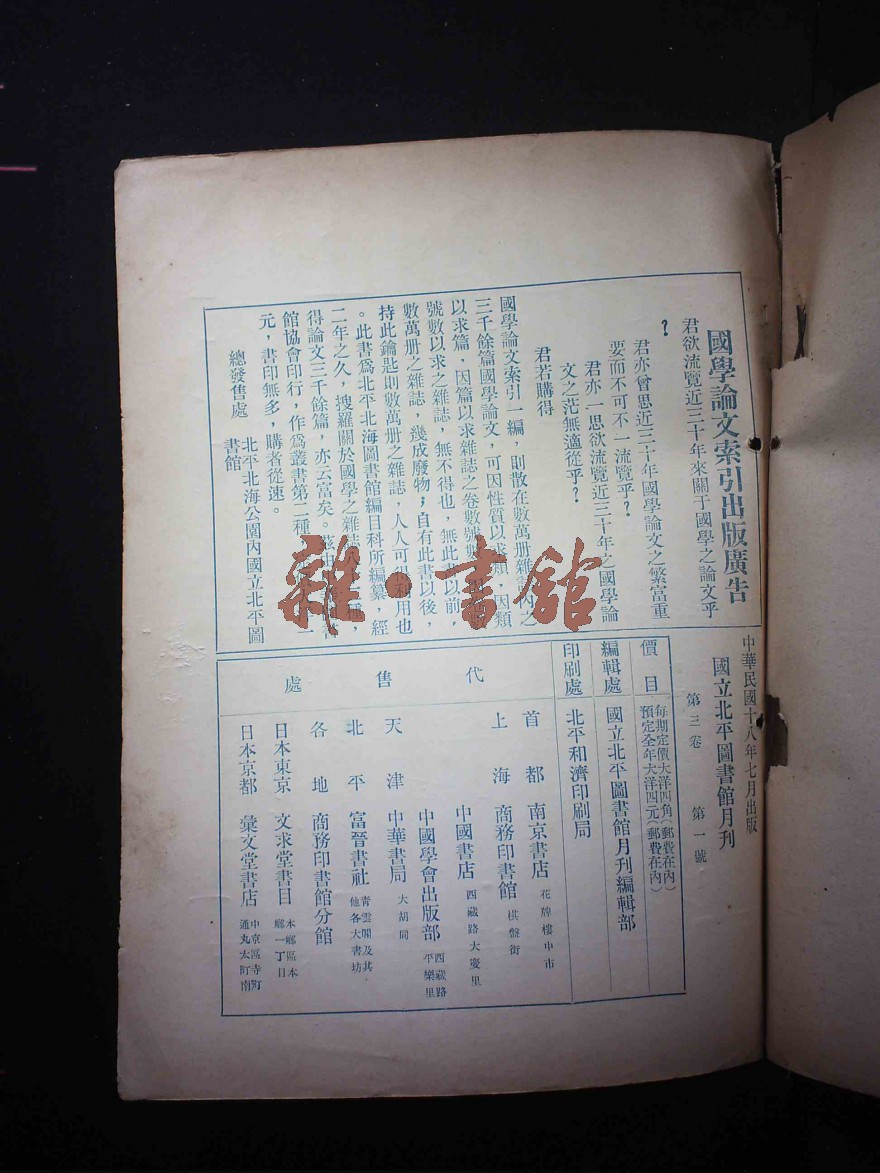 國學論文索引出版廣告
君欲流覽近三十年來關于國學之論文乎
?
君亦曾思近三十年國學論文之繁富重
要而不可不一流覽乎?
君亦一思欲流覽近三十年之國學論
文之茫無適從乎?
君若購得
國學論文索引一編,則散在數萬册雜誌內之
三千餘篇國學論文,可因性質以求類,因類
以求篇,因篇以求雜誌之卷數號數
號數以求之雜誌,無不得也,無此書以前,
數萬册之雜誌,幾成廢物;自有此書以後,
持此鑰匙則數萬册之雜誌,人人可得利用也
。此書爲北平北海圖書館編目科所編纂,經
二年之久,搜羅關於國學之雜誌
得論文三千餘篇,亦云富矣。茲由
館協會印行,作爲叢書第二種
元,書印無多,購者從速。
總發售處 北平北海公園內國立北平圖
書館
中華民國十八年七月出版
國立北平圖書館月刊
第三卷 第一號
價目 每期定價大洋四角(郵費在內)
預定全年大洋四元(郵費在內)
編輯處 國立北平圖書館月刊編輯部
印刷處 北平和濟印刷局
代售處
首都 南京書店 花牌樓中市
上海 商務印書館 棋盤街
中國書店 西藏路大慶里
中國學會出版部 西藏路
平樂里
天津 中華書局 大胡同
北平 富晉書社 青雲閣及其
他各大書坊
各地 商務印書館分館
日本東京 文求堂書目 本鄉區本
鄉一丁目
日本京都 彙文堂書店 中京區寺町
通丸太町南
雜·書館